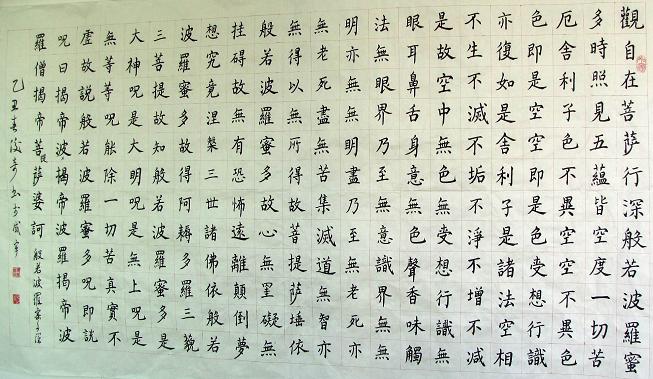 觀自在菩薩行深般若波羅蜜
多時照見五蘊皆空度一切苦
厄舍利子色不異空空不異色
色即是空空即是色受想行識
亦復如是舍利子是諸法空相
不生不滅不垢不淨不增不減
是故空中無色無受想行識無
眼耳鼻舌身意無色聲香味觸
法無眼界乃至無意識界無無
明亦無無明盡乃至無老死亦
無老死盡無苦集滅道無智亦
無得以無所得故菩提薩埵依
般若波羅蜜多故心無罣礙無
挂碍故無有恐怖遠離顛倒夢
想究竟涅槃三世諸佛依般若
波羅蜜多故得阿耨多羅三藐
三菩提故知般若波羅蜜多是
大神呪是大明呪是無上呪是
無等等呪能除一切苦真實不
虛故説般若波羅蜜多呪即説
呪曰揭帝波揭帝波羅揭帝波
羅僧揭帝菩提薩婆訶 般若波羅蜜多心經
乙丑春